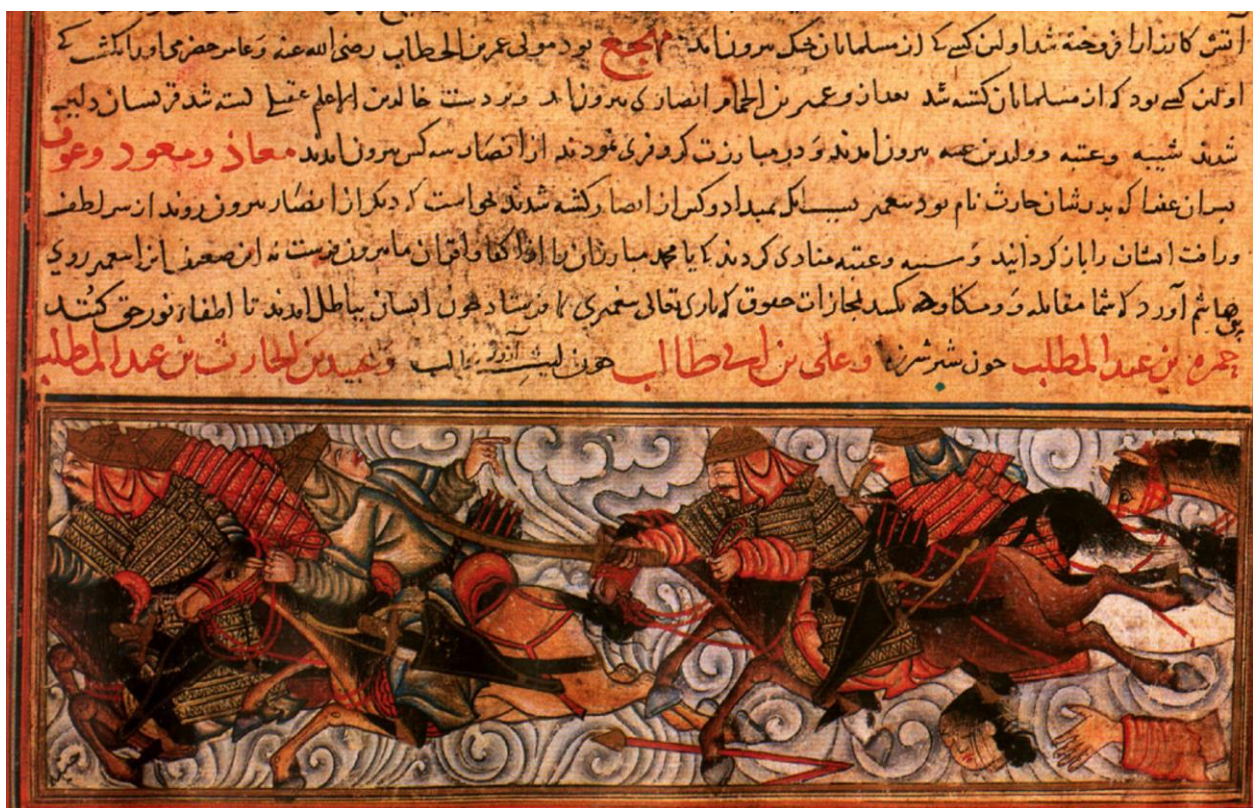 آتش کارزار افروخته شد اولین کسی که از مسلمانان بجنگ بیرون آمد مهجع بود مولی عمر بن الخطاب رضی الله عنه و عامر حضرمی او را بکشت کی
اولین کسی بود که از مسلمانان کشته شد بعد از و عمیر بن الحمام انصاری بیرون آمد و بر دست خالد بن الاعلم عقیلی کشته شد فرسان دلیر
شدند شیبه و عتبه و ولید بن عتبه بیرون آمدند و در مبارزت کر و فری نمودند از انصار سه کس بیرون آمدند معاذ و معوذ و عوف
پسران عفرا که پدرشان حارث نام بود پیغمبر کشته شدند نخواست که دیگر از انصار بیرون روند از سر لطف
و رافت ایشان را باز گردانید و شیبه و عتبه منادی کردند کی یا محمد مبارزان را از اکفا و اقران ما بیرون فرست نه این ضعیفان را پیغمبر روی
بنی هاشم آورد که شما مقابله و بکنید مجازات حقوق که باری تعالی پیغمبری فرستاد چون ایشان بباطل آمدند تا اطفاء نور حق کنند
حمزه بن عبد المطلب چون شیر شرزه و علی بن ابی طالب چون لیث غالب و عبید بن الحارث بن عبد المطلب